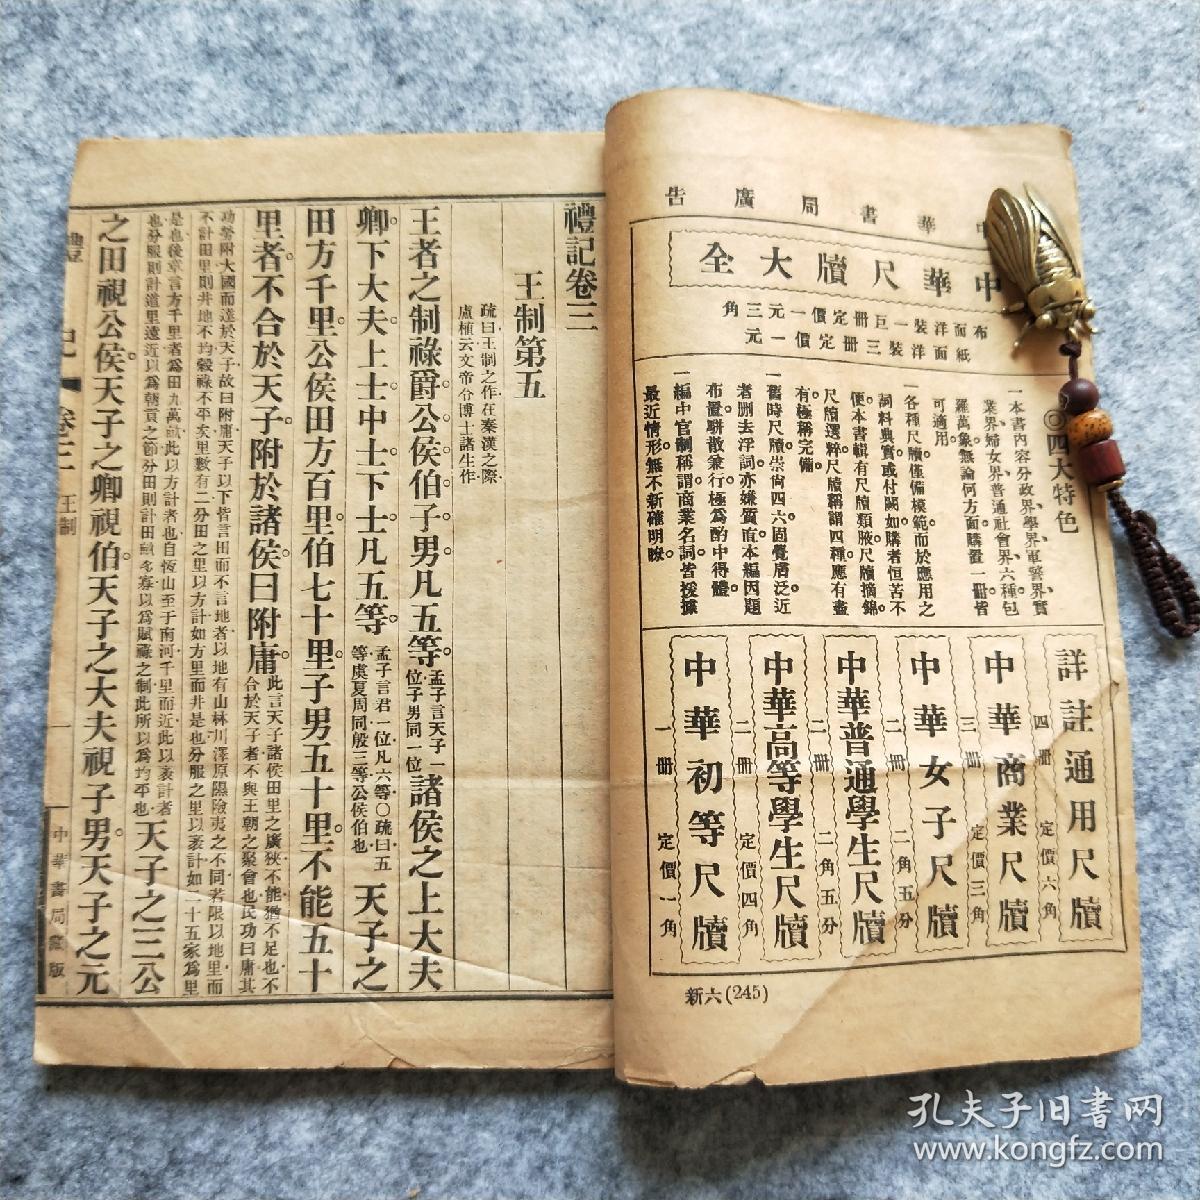 中華書局廣告
中華尺牘大全
布面洋裝一巨册定價一元三角
紙面洋裝三册定價一元
◎四大特色
一本書內容分政界、學界、軍警界、實
業界、婦女界、普通社會界、六種包
羅萬象無論何方面購置一册皆
可適用。
一各種尺牘僅備模範而於應用之
詞料典實或付闕如購者恒苦不
便本書輯有尺牘類腋尺牘摘錦
尺牘選粹尺牘稱謂四種應有盡
有極稱完備。
一舊時尺牘崇尙四六固覺膚泛近
者删去浮詞亦嫌質直本編因題
布置駢散兼行極爲酌中得體。
一編中官制稱謂商業名詞皆援據
最近情形無不新確明瞭。
詳註通用尺牘
四册 定價六角
中華商業尺牘
三册 定價三角
中華女子尺牘
二册 二角五分
中華普通學生尺牘
二册 二角五分
中華高等學生尺牘
二册 定價四角
中華初等尺牘
一册 定價一角
新六(245)
禮記卷三
王制第五
疏曰王制之作在秦漢之際
盧植云文帝令博士諸生作
王者之制祿爵公侯伯子男凡五等。孟子言天子一位子男同一位諸侯之上大夫
卿。下大夫上士中士下士凡五等。孟子言君一位凡六等○疏曰五等虞夏周同殷三等公侯伯也天子之
田方千里公侯田方百里伯七十里子男五十里不能五十
里者不合於天子附於諸侯曰附庸此言天子諸侯田里之廣狹不能猶不足也不合於天子者不與王朝之聚會也民功曰庸其
功勞附大國而達於天子故曰附庸天子以下皆言田而不言地者以地有山林川澤原隰險夷之不同若限以地里而
不計田里則井地不均穀祿不平矣里數有二分田之里以方計如方里而井是也分服之里以袤計如二十五家爲里
是也後章言方千里者爲田九萬畝此以方計者也自恆山至于南河千里而近此以袤計者
也分服則計道里遠近以爲朝貢之節分田則計田畝多寡以爲賦祿之制此所以爲均平也天子之三公
之田視公侯天子之卿視伯天子之大夫視子男天子之元
禮記 卷三 王制 一 中華書局藏版
孔夫子旧書网
www.kongfz.com